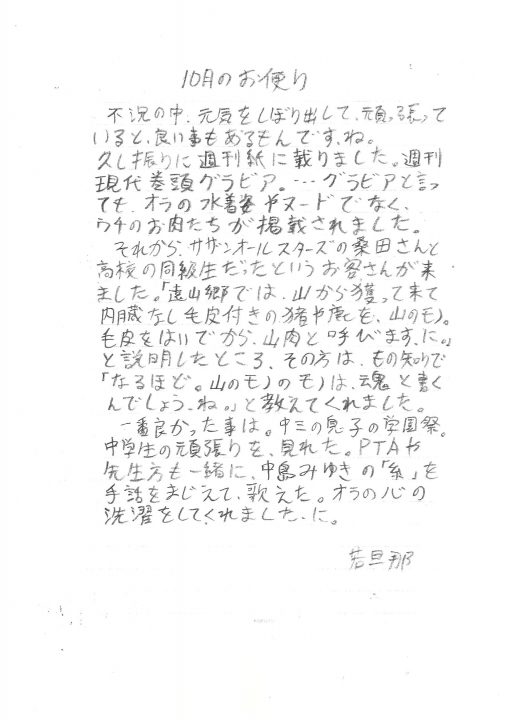 10月のお便り
不況の中、元気をしぼり出して、頑っ張って
いると、良い事もあるもんです、ね。
久し振りに週刊紙に載りました。週刊
現代巻頭グラビア。…グラビアと言っ
ても、オラの水着姿やヌードでなく、
ウチのお肉たちが掲載されました。
それから、サザンオールスターズの桑田さんと
高校の同級生だったというお客さんが来
ました。「遠山郷では、山から獲って来て
内臓なし毛皮付きの猪や鹿を、山のモノ。
毛皮をはいでから、山肉と呼びます、に。」
と説明したところ、その方は、もの知りで
「なるほど。山のモノのモノは、魂と書く
んでしょう、ね。」と教えてくれました。
一番良かった事は。中三の息子の学園祭。
中学生の頑張りを、見れた。PTAや
先生方も一緒に、中島みゆきの「糸」を
手話をまじえて、歌えた。オラの心の
洗濯をしてくれました、に。
若旦那